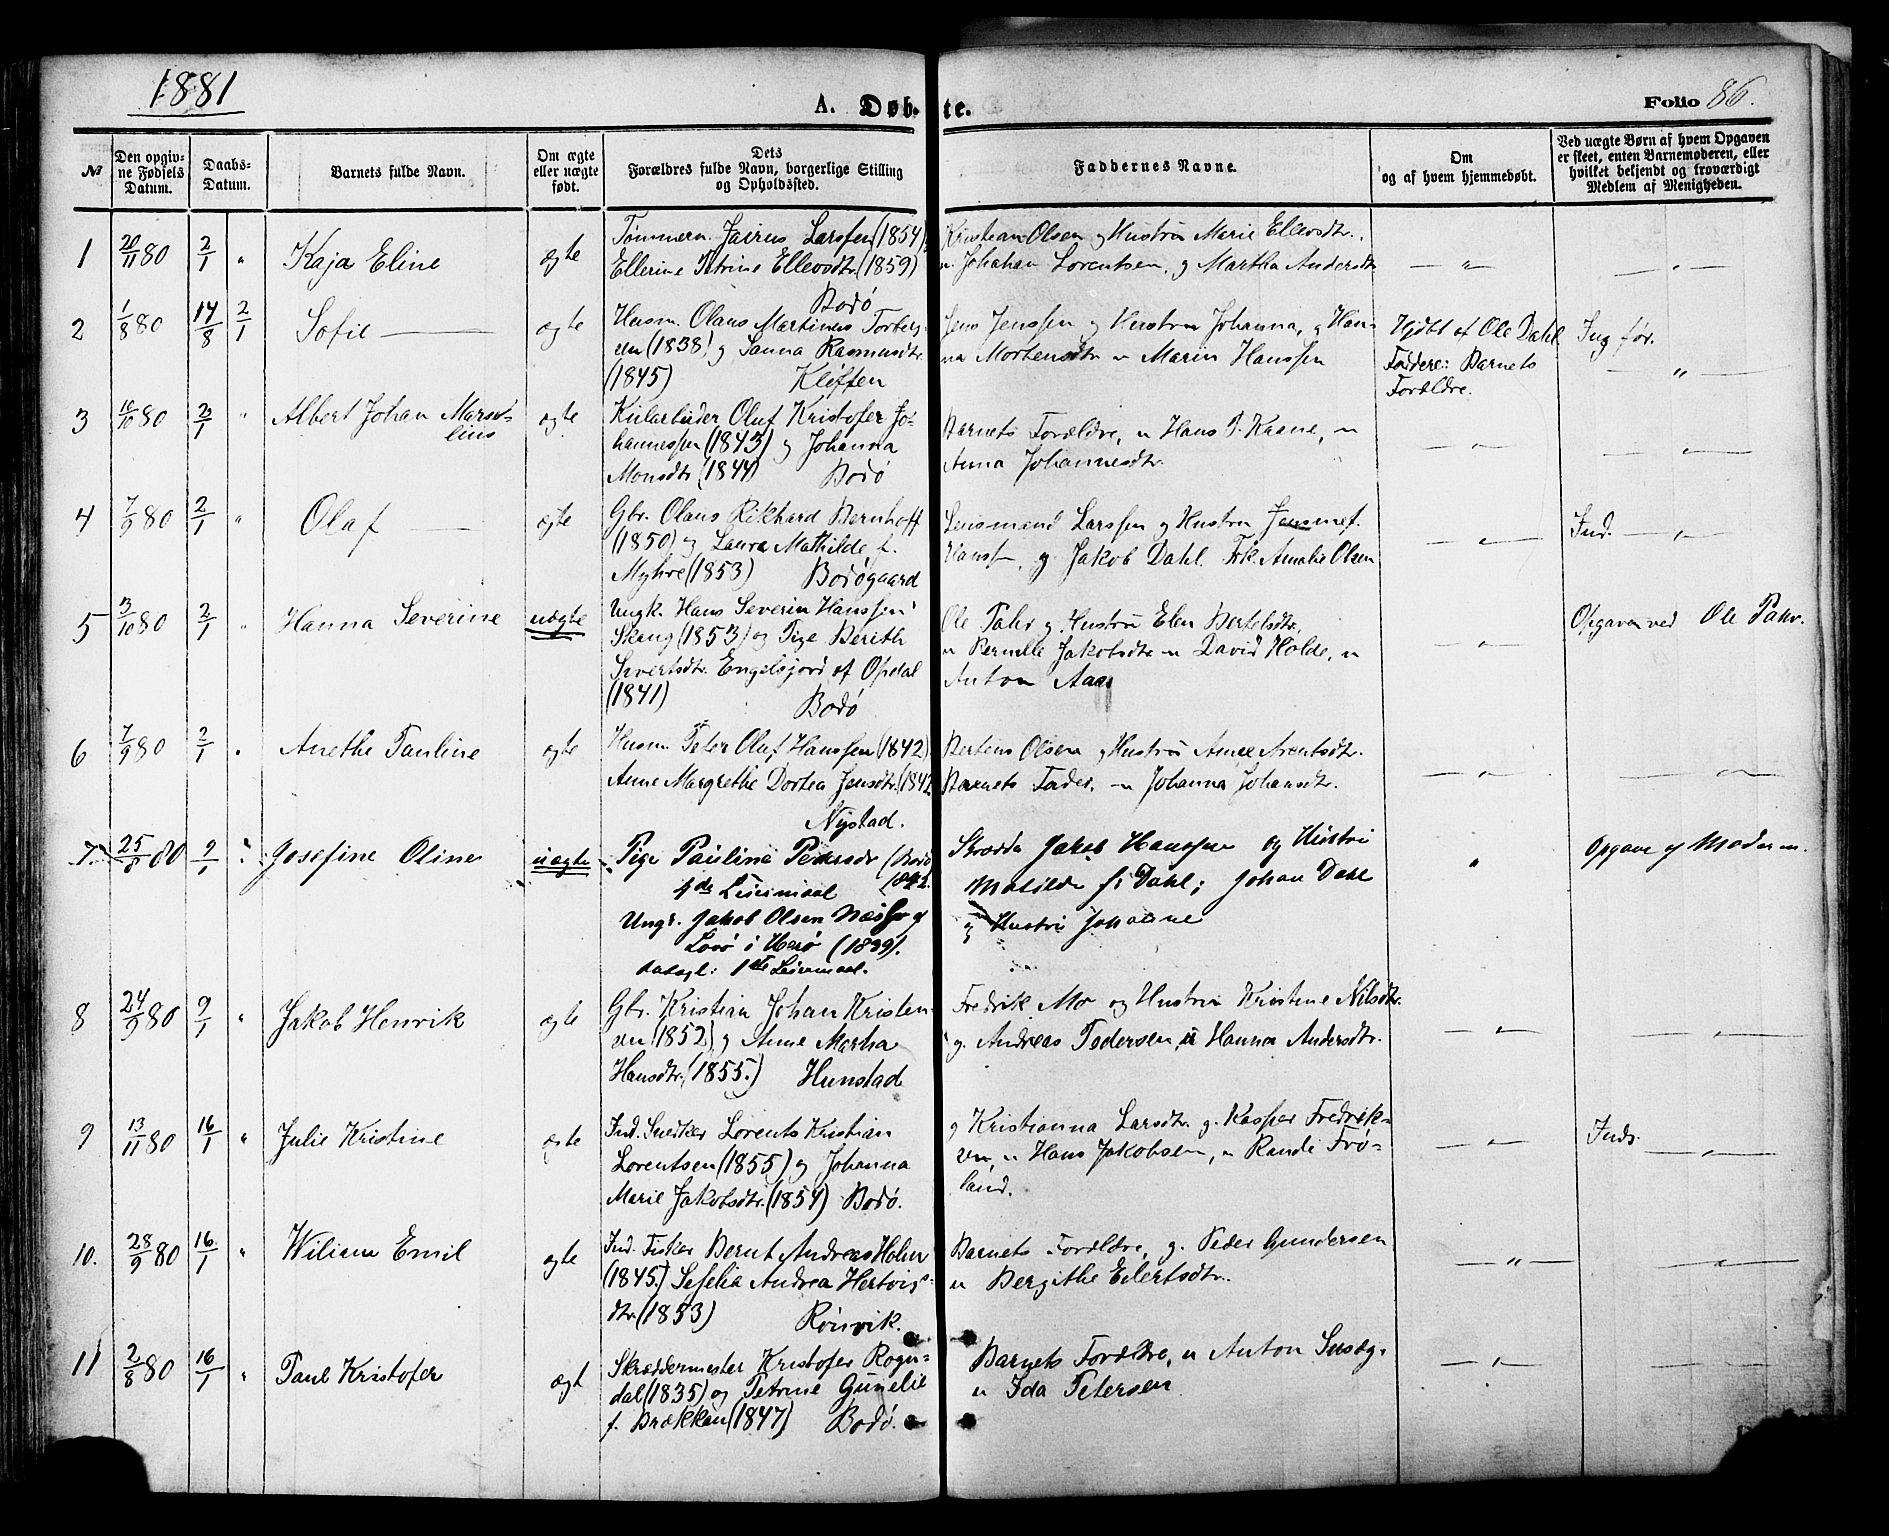 1881
A. Døb- te.
Folio 86.
№
Den opgiv-
ne Fødsels
Datum.
Daabs-
Datum.
Barnets fulde Navn.
Om ægte
eller uægte
født.
Dets
Forældres fulde Navn, borgerlige Stilling
og Opholdssted.
Faddernes Navne.
Om
og af hvem hjemmedøbt.
Ved uægte Børn af hvem Opgaven
er skeet, enten Barnemoderen, eller
hvilket bekjendt og troværdigt
Medlem af Menigheden.
1 20/11 80 2/1 " Kaja Eline ægte
Tømmerm. Jairus Larssen (1854)
Ellerine Petrine Ellevsdtr. (1859)
Bodø
Kristian Olsen og Hustru Marie Ellevsdtr.
" Johahan Lorentsen, g Martha Andersdtr
— " — — " —
2 1/8 80 14/8 2/1 Sofie — ægte
Husm. Olaus Martinus Torberg-
sen (1838) g Sanna Rasmusdtr.
(1845) Kløften
Jens Jenssen og Hustru Johanna, g Han-
na Mortensdtr " Marin Hanssen
Hjdbt af Ole Dahl
Faddere: Barnets
Forældre.
Ing før.
— " —
3 10/10 80 2/1 " Albert Johan Marse-
lius ægte
Olaf Kristofer Jo-
hannessen (1843) g Johanna
Monsdtr. (1844) Bodø
Barnets Forældre, " Hans J. Kaane, "
Anna Johannesdtr.
— " — — " —
4 7/9 80 2/1 " Olaf — ægte
Gbr. Olaus Rikhard Bernhoff
(1850) og Laura Mathilde f.
Myhre (1853) Bodøgaard
Lensmand Larssen g Hustru
Hanss, g. Jakob Dahl. Frk. Amalie Olsen
— " —
Ind. — " —
5 3/10 80 2/1 " Hanna Severine uægte
Ungk. Hans Severin Hanssen
Skaug (1853) og Pige Berith
Sivertsdtr. Engelsjord af Opdal
(1841) Bodø
Ole Pahr g Hustru Elen Bertelsdtr,
" Pernelle Jakobsdtr " David Holde, "
Anton Aas
— " —
Opgaven ved Ole Pahr.
6 7/9 80 2/1 " Anethe Pauline ægte
Husm. Peter Oluf Hanssen (1842)
Anne Margrethe Dortea Jensdtr. (1842
Nystad.
Bertens Olsen g Hustru Anne Arentsdtr.
Barnets Fader. " Johanna Johansdtr.
— " — — " —
7. 25/8 80 9/1 " Josefine Oline uægte
Pige Pauline Pedersdr (Bodø
1842.
1de Leiermaal
Ungk. Jakob Olsen Næss af
Lovø i Herø (1839).
1ste Leiermaal.
Skrædder Jakob Hanssen og Hustru
Matilde f. Dahl; Johan Dahl
g Hustru Johanne
"
Opgave af Moderen.
8 24/9 80 9/1 " Jakob Henrik ægte
Gbr. Kristian Johan Kristen-
sen (1852) g Anne Martha
Hansdtr. (1855.) Hunstad
Fredrik Mo og Hustru Kristine Nilsdtr.
g. Andreas Pedersen, " Hanna Andersdtr.
— " — — " —
9 13/11 80 16/1 " Julie Kristine ægte
Ind. Snedker Lorents Kristian
Lorentsen (1855) og Johanna
Marie Jakobsdtr. (1854) Bodø.
g Kristianna Larsdtr. g. Kasper Fredrik-
sen, " Hans Jakobsen, " Randi Frø-
land.
— " —
Inds. — " —
10. 28/9 80 16/1 " Wiliam Emil ægte
Ind. Fisker Bernt Andreas Holm
(1845.) Sefelia Andrea Hertvigs-
dtr. (1853) Rønvik.
Barnets Forældre, g. Peder Gundersen
" Bergithe Eilertsdtr.
— " — — " —
11 2/8 80 16/1 " Paul Kristofer ægt
Skræddermester Kristofer Rogn-
dal (1835) og Petrine Gunelie
f. Brækkan (1847) Bodø.
Barnets Forældre, " Anton
" Ida Petersen.
— " — — " —